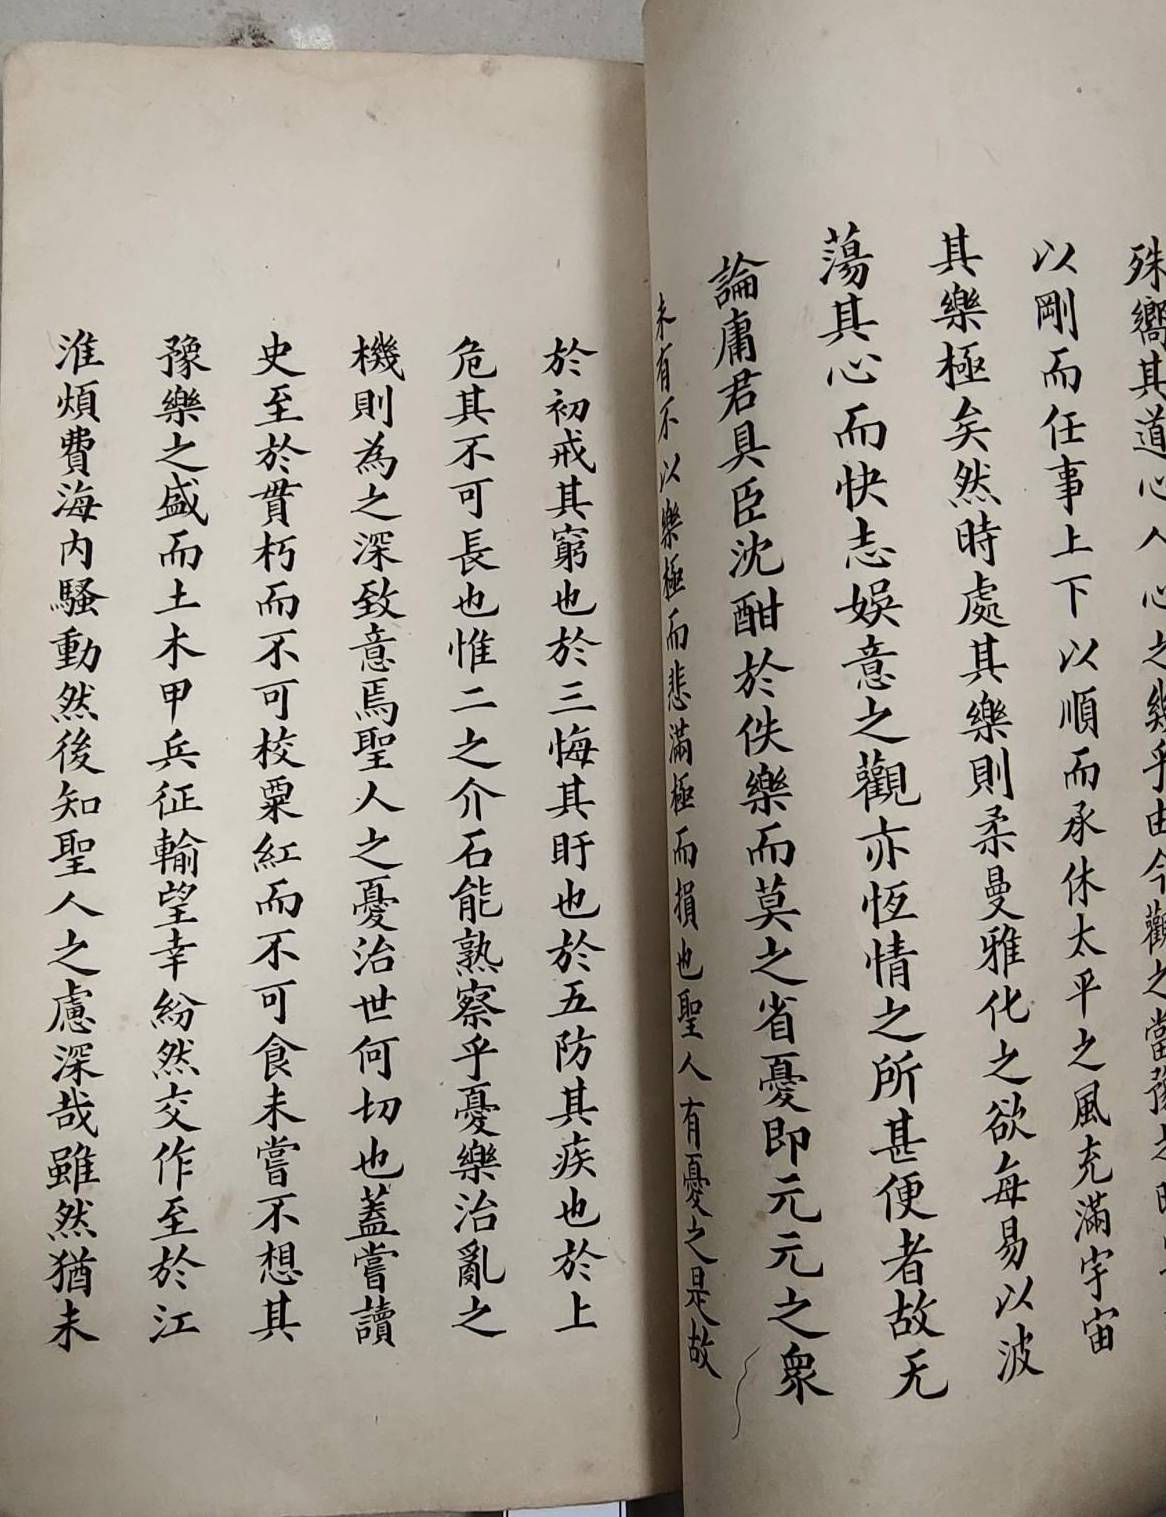 殊嚮其道心人心之幾乎由今觀之當豫之時
以剛而任事上下以順而承休太平之風充滿宇宙
其樂極矣然時處其樂則柔曼雅化之欲每易以波
蕩其心而快志娛意之觀亦恆情之所甚便者故无
論庸君具臣沈酣於佚樂而莫之省憂即元元之衆
未有不以樂極而悲滿極而損也聖人有憂之是故
於初戒其窮也於三悔其盱也於五防其疾也於上
危其不可長也惟二之介石能熟察乎憂樂治亂之
機則為之深致意焉聖人之憂治世何切也蓋嘗讀
史至於貫朽而不可校粟紅而不可食未嘗不想其
豫樂之盛而土木甲兵征輸望幸紛然交作至於江
淮煩費海內騷動然後知聖人之慮深哉雖然猶未